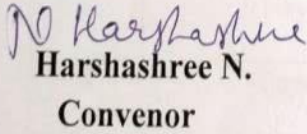 N Harshashree
Harshashree N.
Convenor